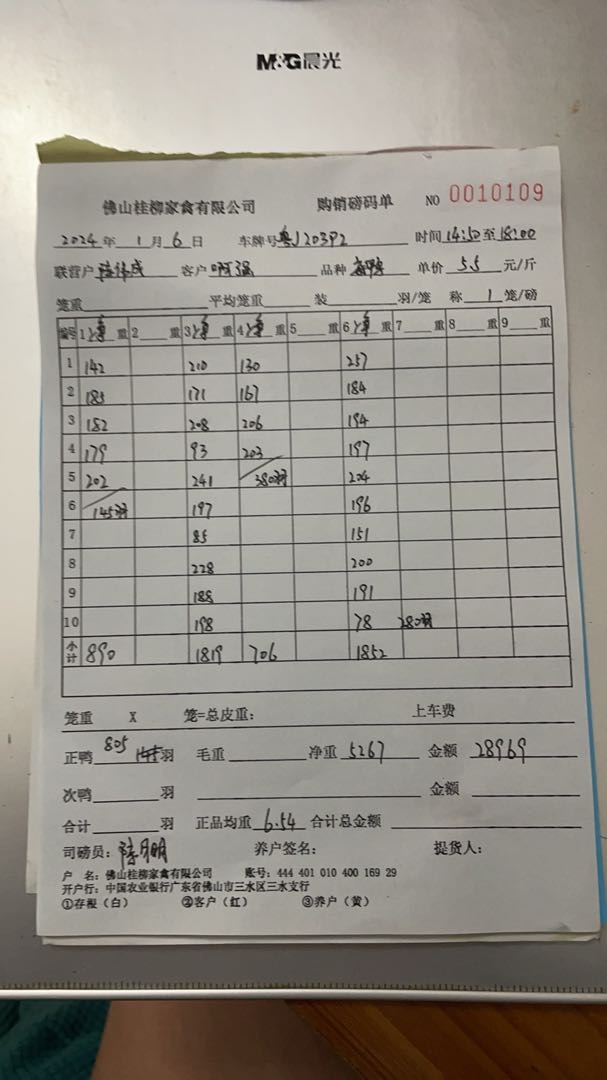 M&G晨光
佛山桂柳家禽有限公司 购销磅码单 NO 0010109
2024年1月6日 车牌号粤J20392 时间14:50至18:00
联营户 客户 啊强 品种 单价 5.5 元/斤
笼重 平均笼重 装 羽/笼 称 1 笼/磅
编号 1 净 重 2 重 3 净 重 4 净 重 5 重 6 净 重 7 重 8 重 9 重
1 142 210 130 257
2 185 171 167 184
3 182 208 206 194
4 179 93 203 197
5 202 241 380羽 204
6 145羽 197 196
7 85 151
8 228 200
9 188 191
10 198 78 280羽
小计 890 1819 706 1852
笼重 X 笼=总皮重: 上车费
正鸭 805 145 羽 毛重 净重 5267 金额 28969
次鸭 羽 金额
合计 羽 正品均重 6.54 合计总金额
司磅员: 陈月明 养户签名: 提货人:
户 名: 佛山桂柳家禽有限公司 账号: 444 401 010 400 169 29
开户行: 中国农业银行广东省佛山市三水区三水支行
①存根（白） ②客户（红） ③养户（黄）